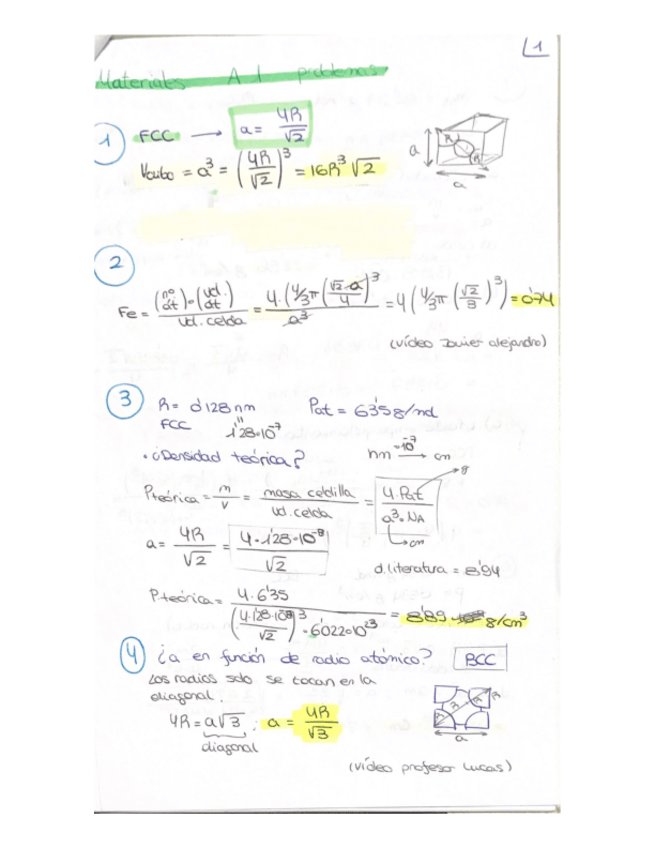 1
Materiales A1 problemas
1 FCC → a = 4R/√2
Vcubo = a³ = (4R/√2)³ = 16R³√2
a
R
R
a
2
Fe = (nº át)·(vol. át.)/vol. celda = 4·(4/3π(√2·a/4)³/a³ = 4(4/3π(√2/3)³) = 0'74
(vídeo Javier alejandro)
3 R = 0'128 nm Pat = 63'58/mol
FCC 1'28·10⁻⁷
· ¿Densidad teórica? nm ·10⁻⁷ → cm
ρteórica = m/v = masa celdilla/vol. celda = 4·Pat/a³·NA
g
cm
a = 4R/√2 = 4·1'28·10⁻⁸/√2
d. literatura = 8'94
ρteórica = 4·6'35/(4·1'28·10⁻⁸/√2)³·6'022·10²³ = 8'89 g/cm³
4 ¿a en función de radio atómico? BCC
Los radios solo se tocan en la
diagonal.
4R = a√3 ; a = 4R/√3
diagonal
R
R
R
R
a
(vídeo profesor Lucas)